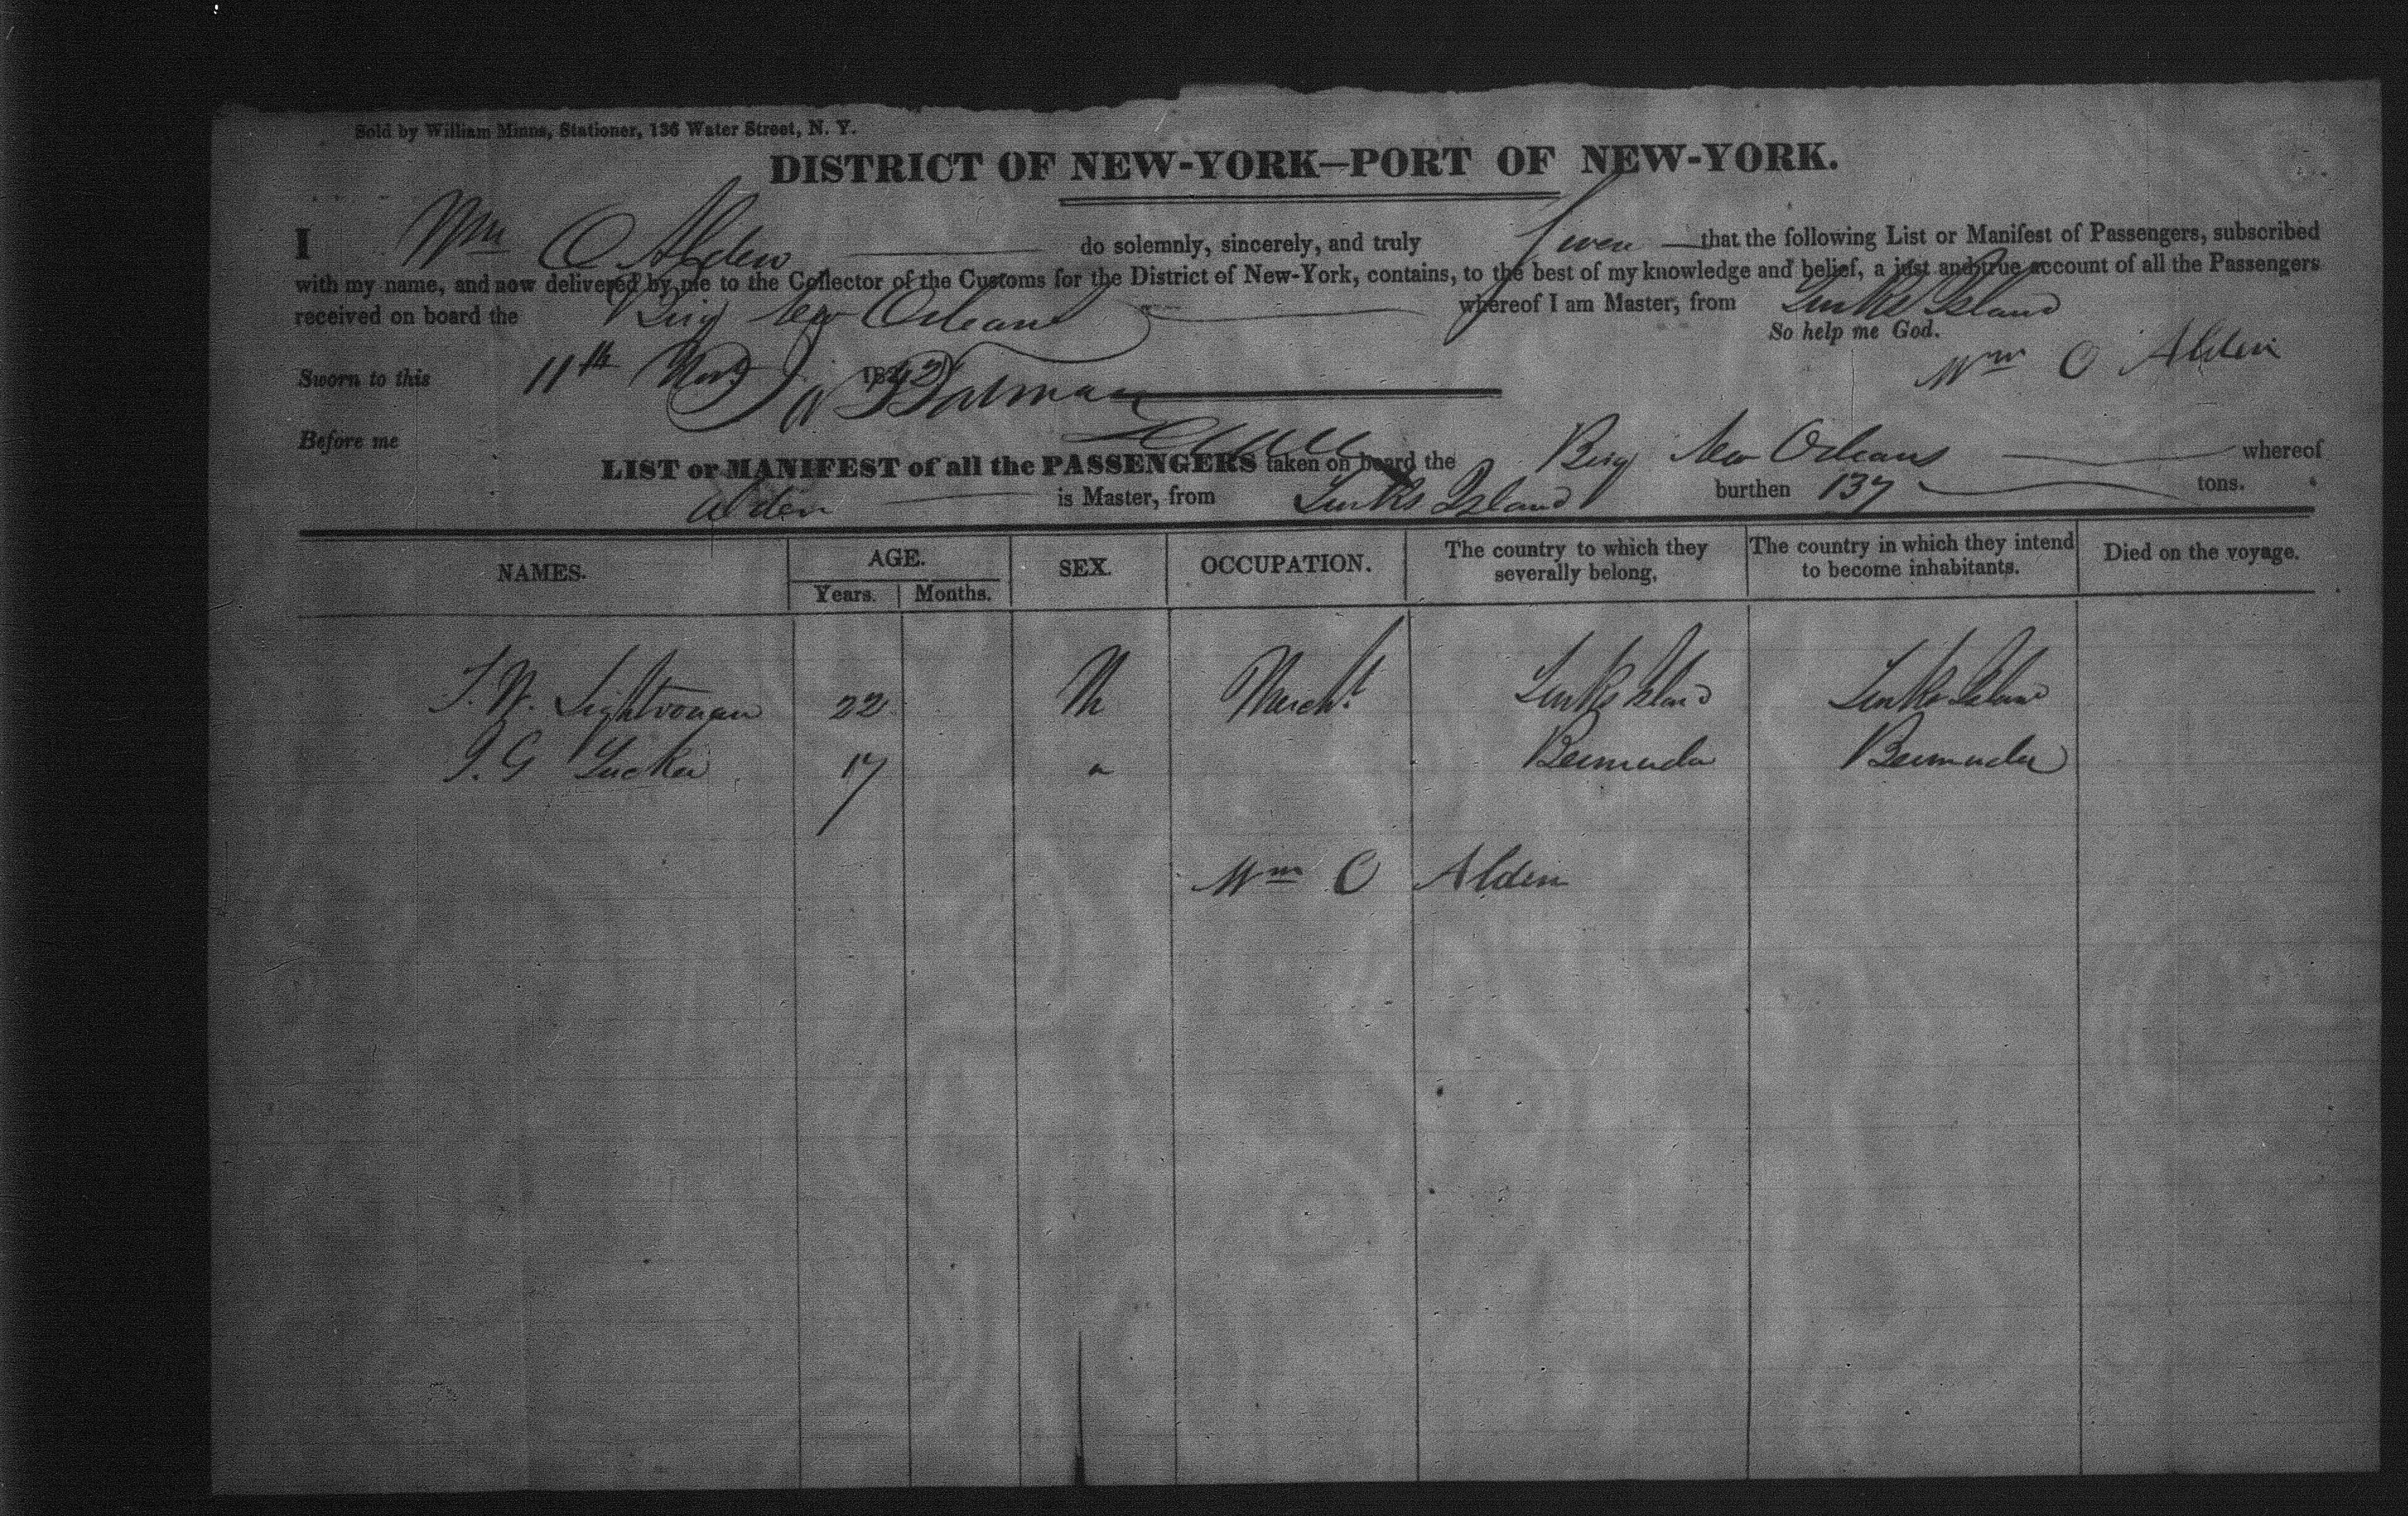 Sold by William Minns, Stationer, 136 Water Street, N. Y.
DISTRICT OF NEW-YORK—PORT OF NEW-YORK.
I Wm O Alden do solemnly, sincerely, and truly swear that the following List or Manifest of Passengers, subscribed
with my name, and now delivered by me to the Collector of the Customs for the District of New-York, contains, to the best of my knowledge and belief, a just and true account of all the Passengers
received on board the Brig New Orleans whereof I am Master, from Turks Island
So help me God.
Sworn to this 11th Nov 1842 Wm O Alden
Before me
LIST or MANIFEST of all the PASSENGERS taken on board the Brig New Orleans whereof
Alden is Master, from Turks Island burthen 137 tons.
NAMES. AGE. SEX. OCCUPATION. The country to which they severally belong, The country in which they intend to become inhabitants. Died on the voyage.
Years. Months.
22 M Mercht Turks Island Turks Island
J. G Tucker 17 " Bermuda Bermuda
Wm O Alden